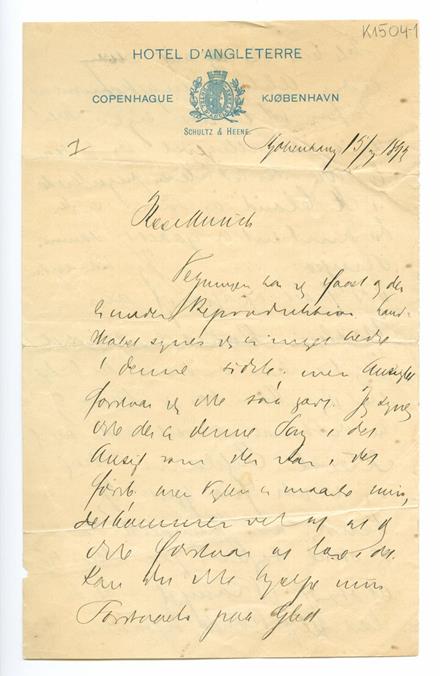 K1504-1
HOTEL D'ANGLETERRE
COPENHAGUE KJØBENHAVN
SCHULTZ & HEENE
I
Kjøbenhavn 15/7 189
Kjære Munch
Tegningen har jeg faaet og den
er under Reproduktion.
synes jeg er meget bedre
i denne sidste. men Ansigtet
forstaar jeg ikke saa godt. Jeg synes
ikke der er denne Sorg i det
Ansigt som der var i det
første men Feilen er maaske min,
det kommer vel af at jeg
ikke forstaar at læse det.
Kan du ikke hjælpe min
Forstaaelse paa Gled